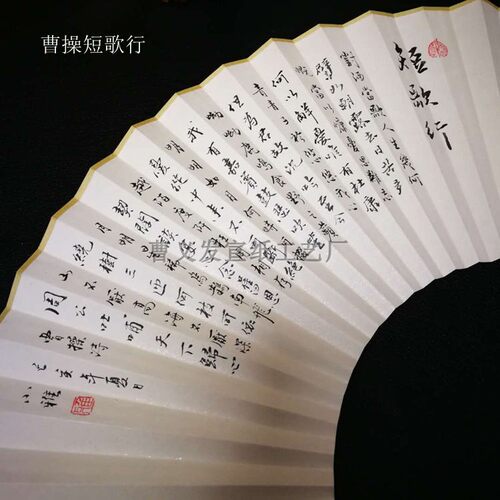 曹操短歌行
短歌行
對酒當歌人生幾何
譬如朝露去日苦多
慨當以慷憂思難忘
何以解憂唯有杜康
青青子衿悠悠我心
但為君故沉吟至今
呦呦鹿鳴食野之苹
我有嘉賓鼓瑟吹笙
明明如月何時可掇
憂從中來不可斷絕
越陌度阡枉用相存
契闊談讌心念舊恩
月明星稀烏鵲南飛
繞樹三匝何枝可依
山不厭高海不厭深
周公吐哺天下歸心
曹操詩
己亥年夏日
小雅
曹义发宣纸工艺厂